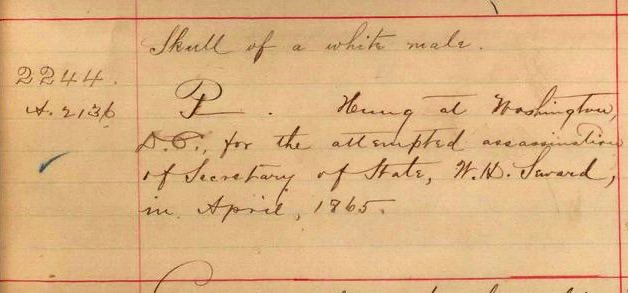 Skull of a white male.
2244.
A. 2136
P. Hung at Washington,
D.C., for the attempted assassination
of Secretary of State, W.H. Seward,
in April, 1865.